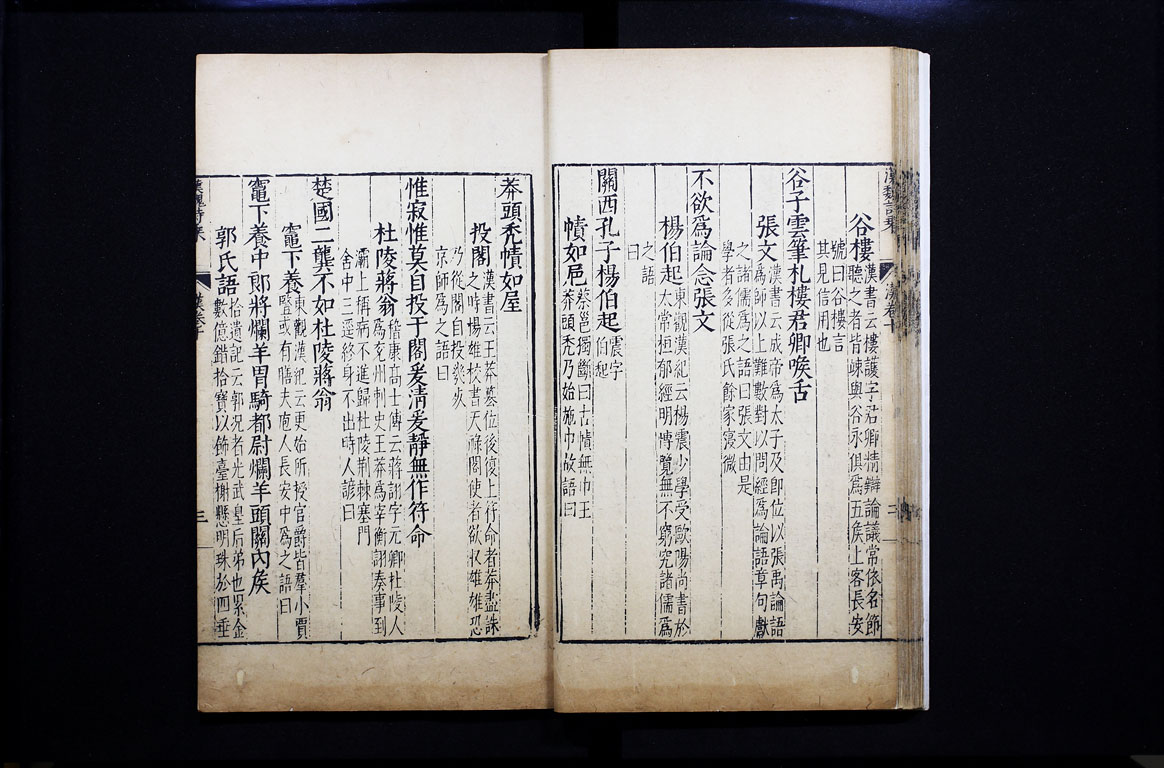 谷樓
漢書云樓護字君卿精辯論議常依名節
聽之者皆竦與谷永俱爲五矦上客長安
號曰谷樓言
其見信用也
谷子雲筆札樓君卿喉舌
張文
漢書云成帝爲太子及即位以張禹論語
爲師以上難數對以問經爲論語章句獻
之諸儒爲之語曰張文由是
學者多從張氏餘家寖微
不欲爲論念張文
楊伯起
東觀漢紀云楊震少學受歐陽尚書於
太常桓郁經明博覽無不窮究諸儒爲
之語
曰
關西孔子楊伯起
震字
伯起
幘如巵
蔡邕獨斷曰古幘無巾王
莽頭禿乃始施巾故語曰
漢魏詩乘
漢卷十
二
莽頭禿幘如屋
投閣
漢書云王莽墓位後復上符命者莽盡誅
之時楊雄校書天祿閣使者欲収雄雄恐
乃從閣自投幾死
京師爲之語曰
惟寂惟莫自投于閣爰清爰靜無作符命
杜陵蔣翁
嵇康高士傳云蔣詡字元卿杜陵人
爲兗州刺史王莽爲宰衡詡奏事到
灞上稱病不進歸杜陵荆棘塞門
舍中三逕終身不出時人諺曰
楚國二龔不如杜陵蔣翁
竈下養
東觀漢紀云更始所授官爵皆羣小賈
豎或有膳夫庖人長安中爲之語曰
竈下養中郎將爛羊胃騎都尉爛羊頭關內矦
郭氏語
拾遺記云郭況者光武皇后弟也累金
數億錯拾寶以飾臺榭懸明珠於四垂
漢魏詩乘
漢卷十
三